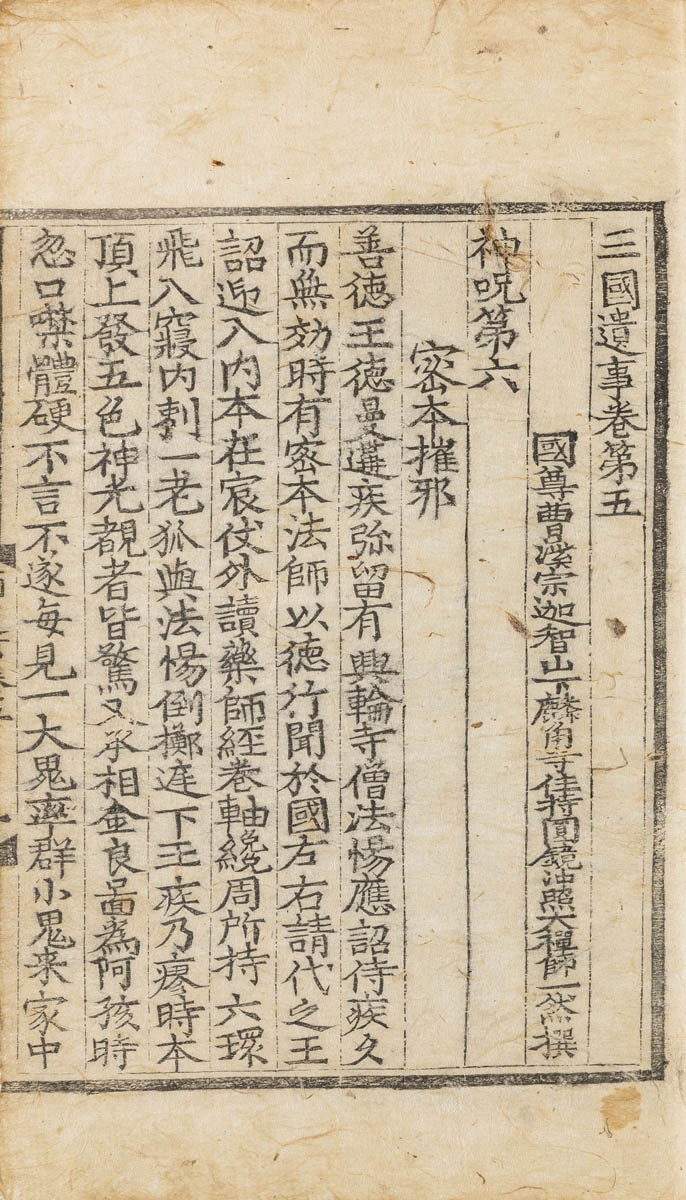 三國遺事卷第五
國尊曹溪宗迦智山下麟角寺住持圓鏡冲照大禪師一然撰
神呪第六
密本摧邪
善徳王徳曼遘疾弥留有興輪寺僧法惕應詔侍疾久
而無効時有密本法師以徳行聞於國左右請代之王
詔迎入内本在宸仗外讀藥師經卷軸纔周所持六環
飛入寢内刺一老狐與法惕倒擲庭下王疾乃瘳時本
頂上發五色神光覩者皆驚又承相金良啚爲阿孩時
忽口噤體硬不言不遂每見一大鬼率群小鬼来家中